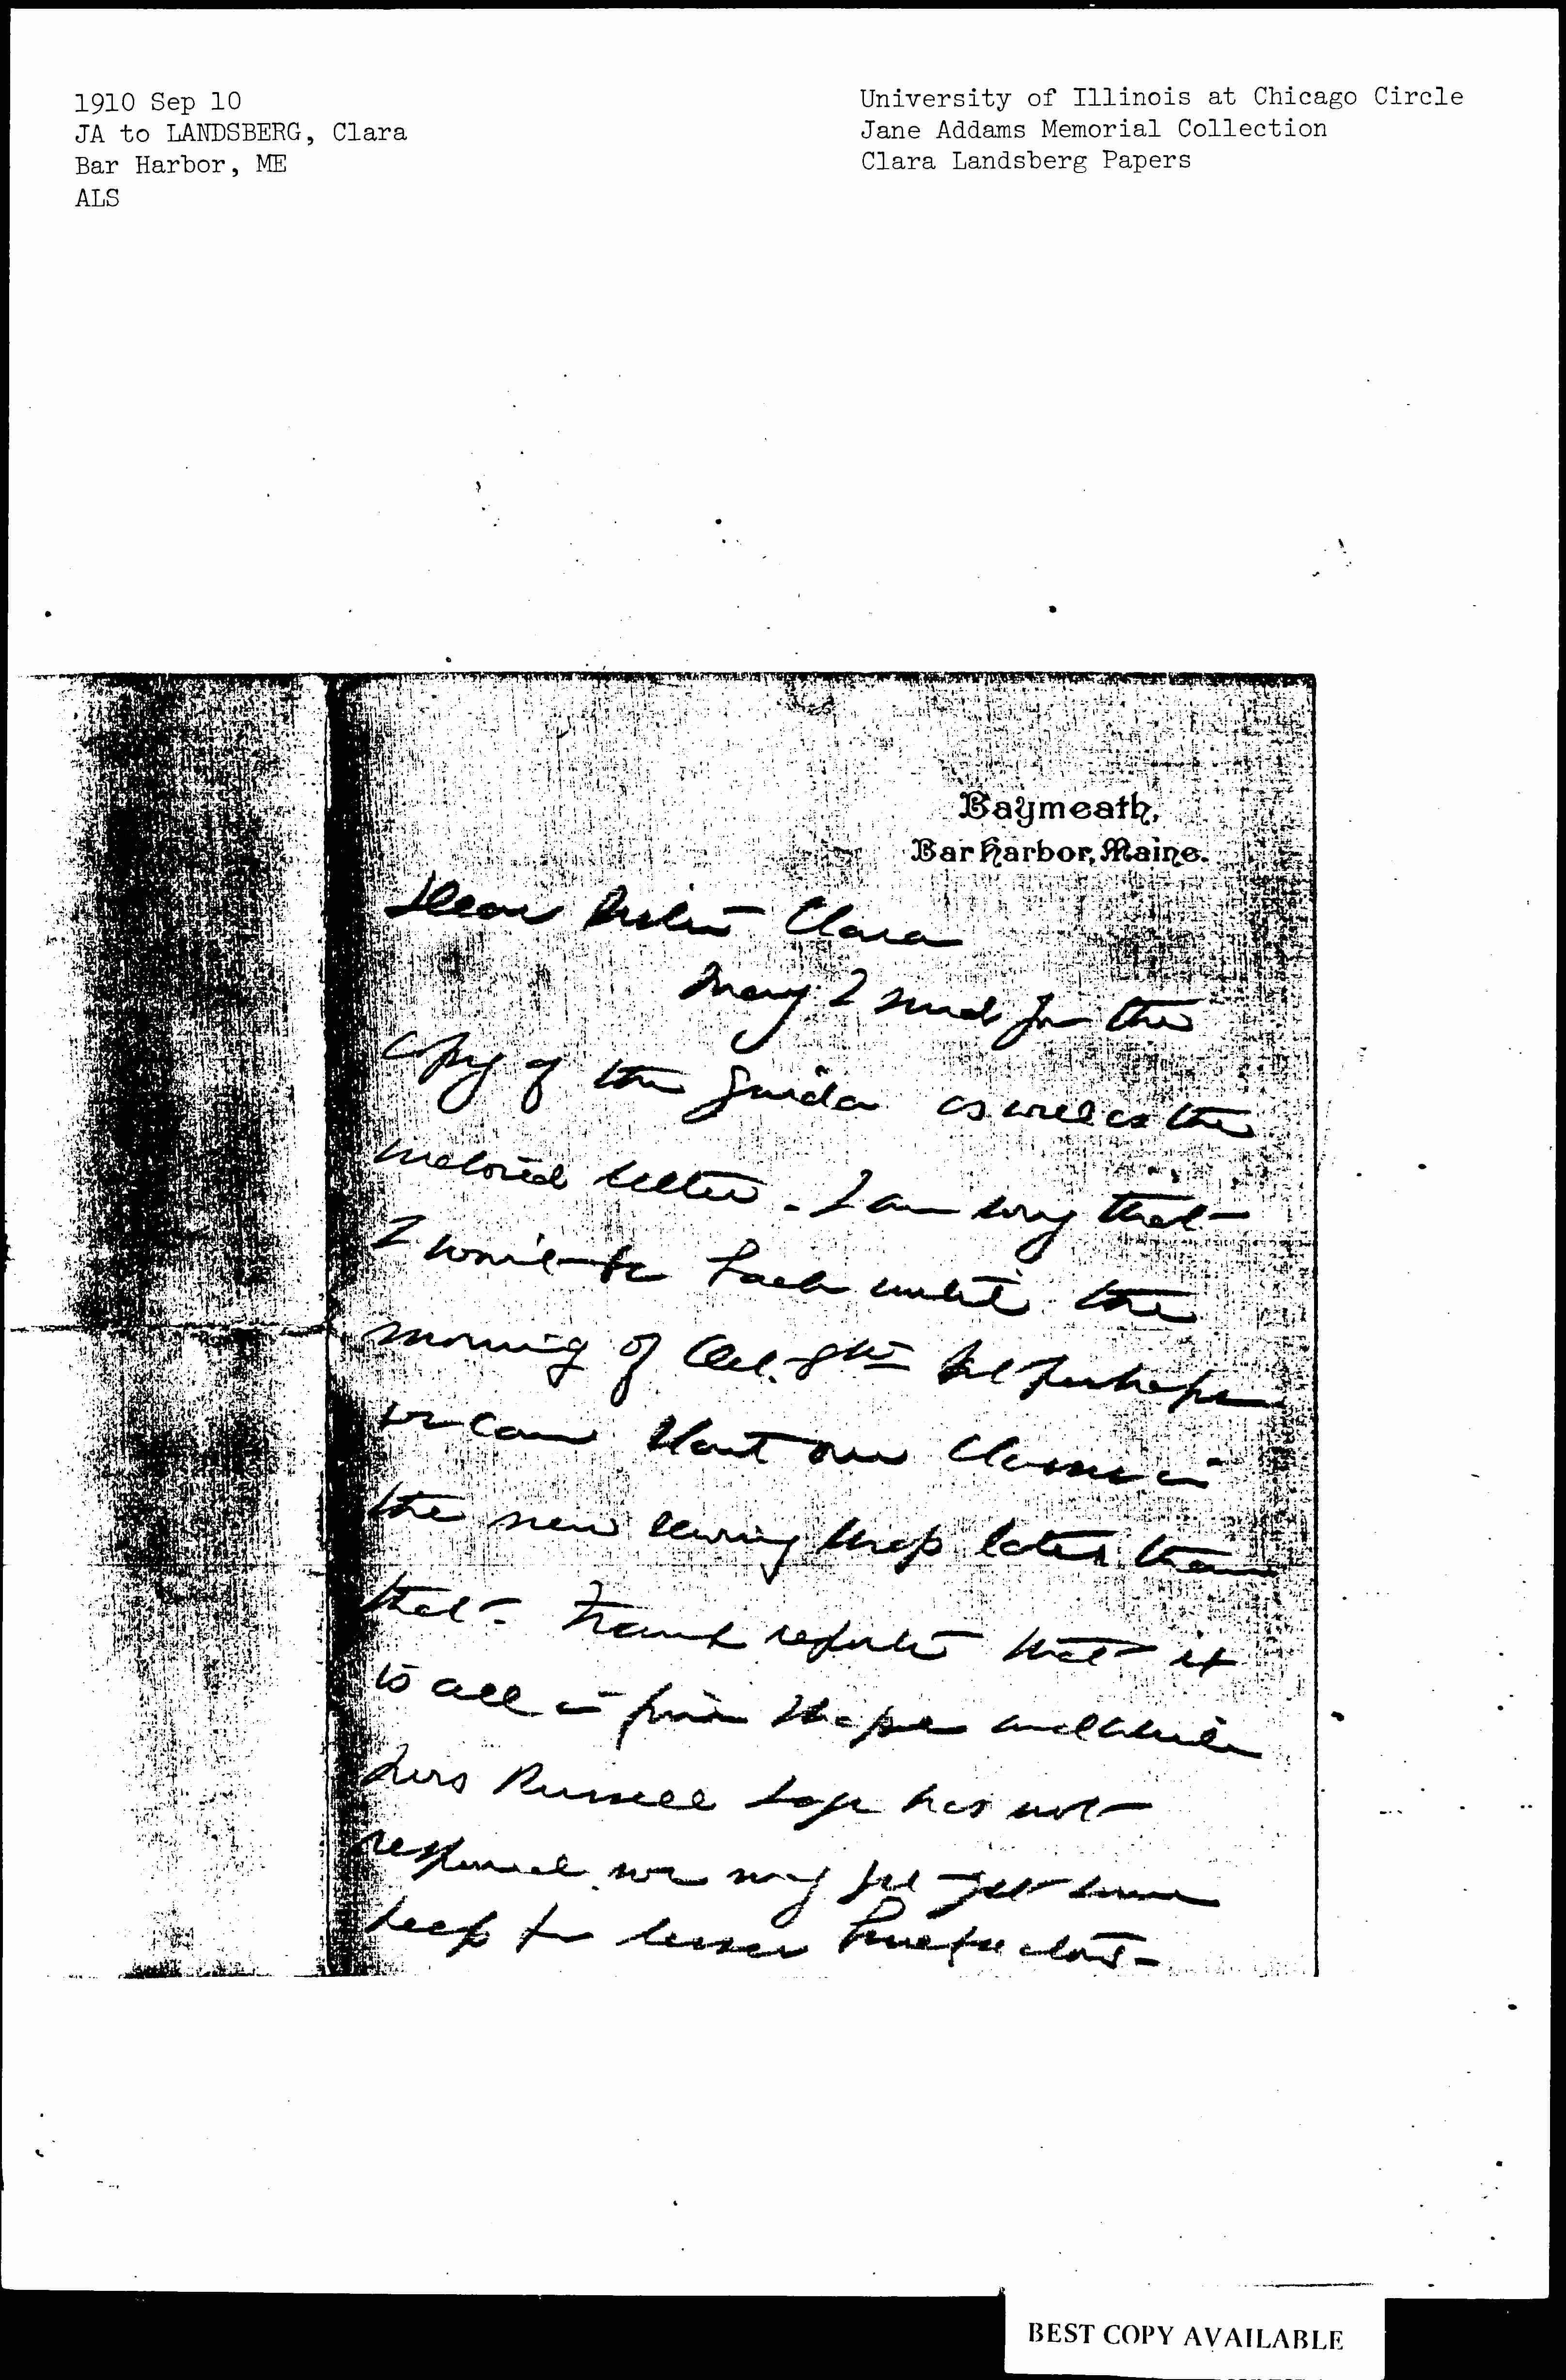 1910 Sep 10
JA to LANDSBERG, Clara
Bar Harbor, ME
ALS
University of Illinois at Chicago Circle
Jane Addams Memorial Collection
Clara Landsberg Papers
Baymeath,
Bar Harbor, Maine.
Dear Sister Clara
Many I send for the
copy of the Guida as well as the
enclosed letter. I am sorry that
I won't be back until the
morning of Oct. 8th but perhaps
we can start our classes in
the new sewing shop later than
that. Frank reports that it
is all in fine shape and while
Mrs Russell Sage has not
responded we may yet get some
help from lesser benefactors -
BEST COPY AVAILABLE